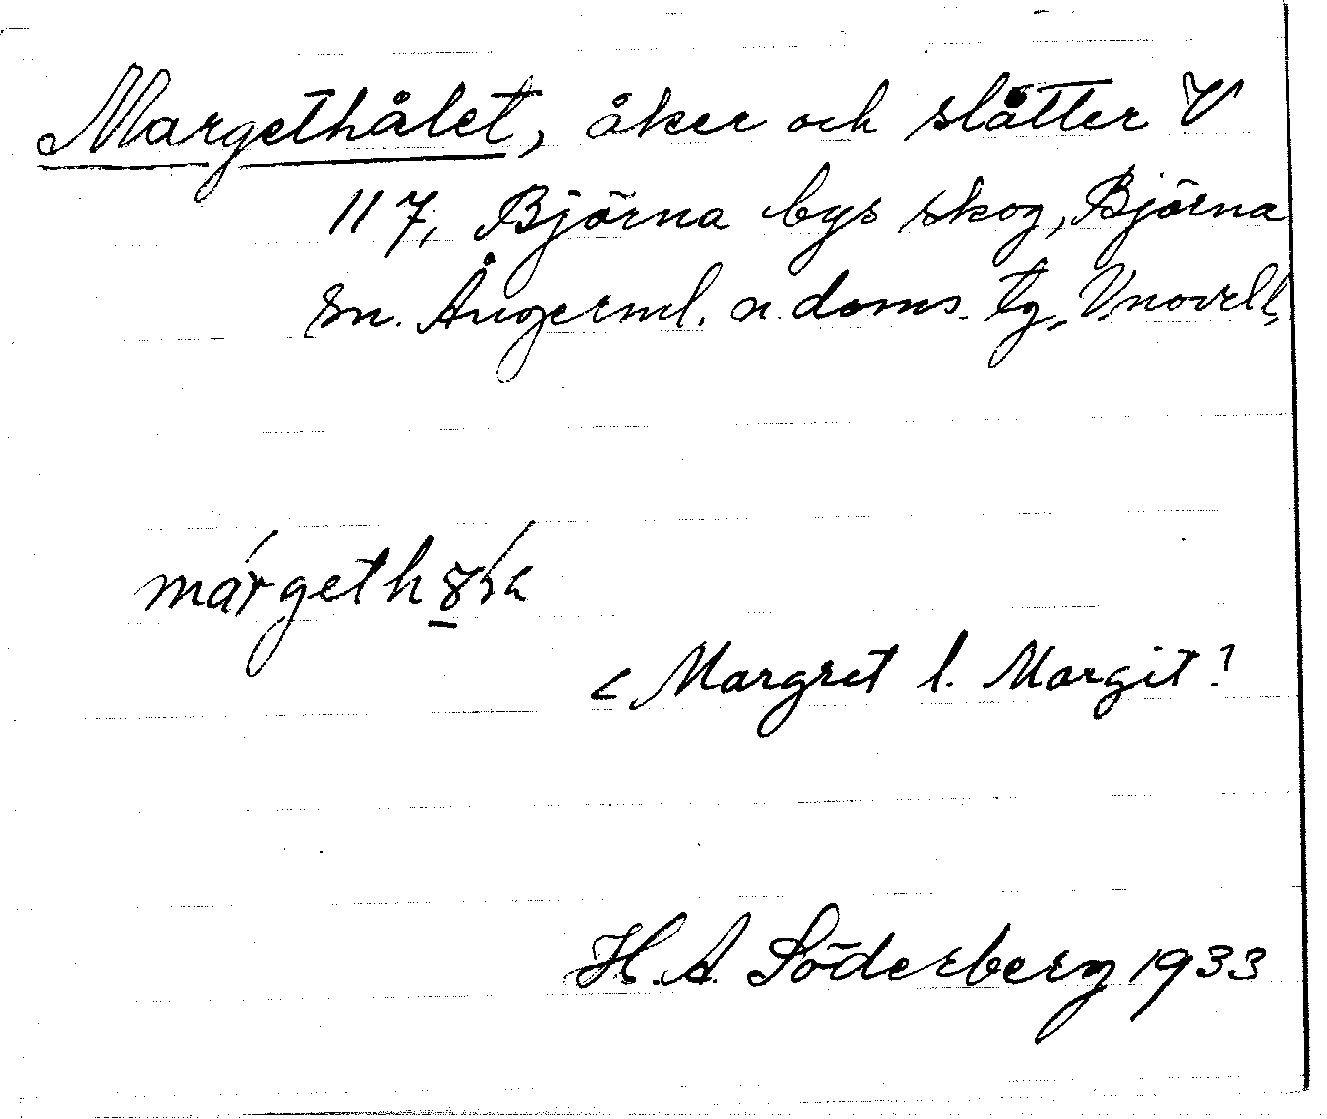 Margethålet, åker och slåtter V
117, Björna bys skog, Björna
sn. Ångerml. n. doms. tg,
márgeth
< Margret l. Margit?
H. A. Söderberg 1933